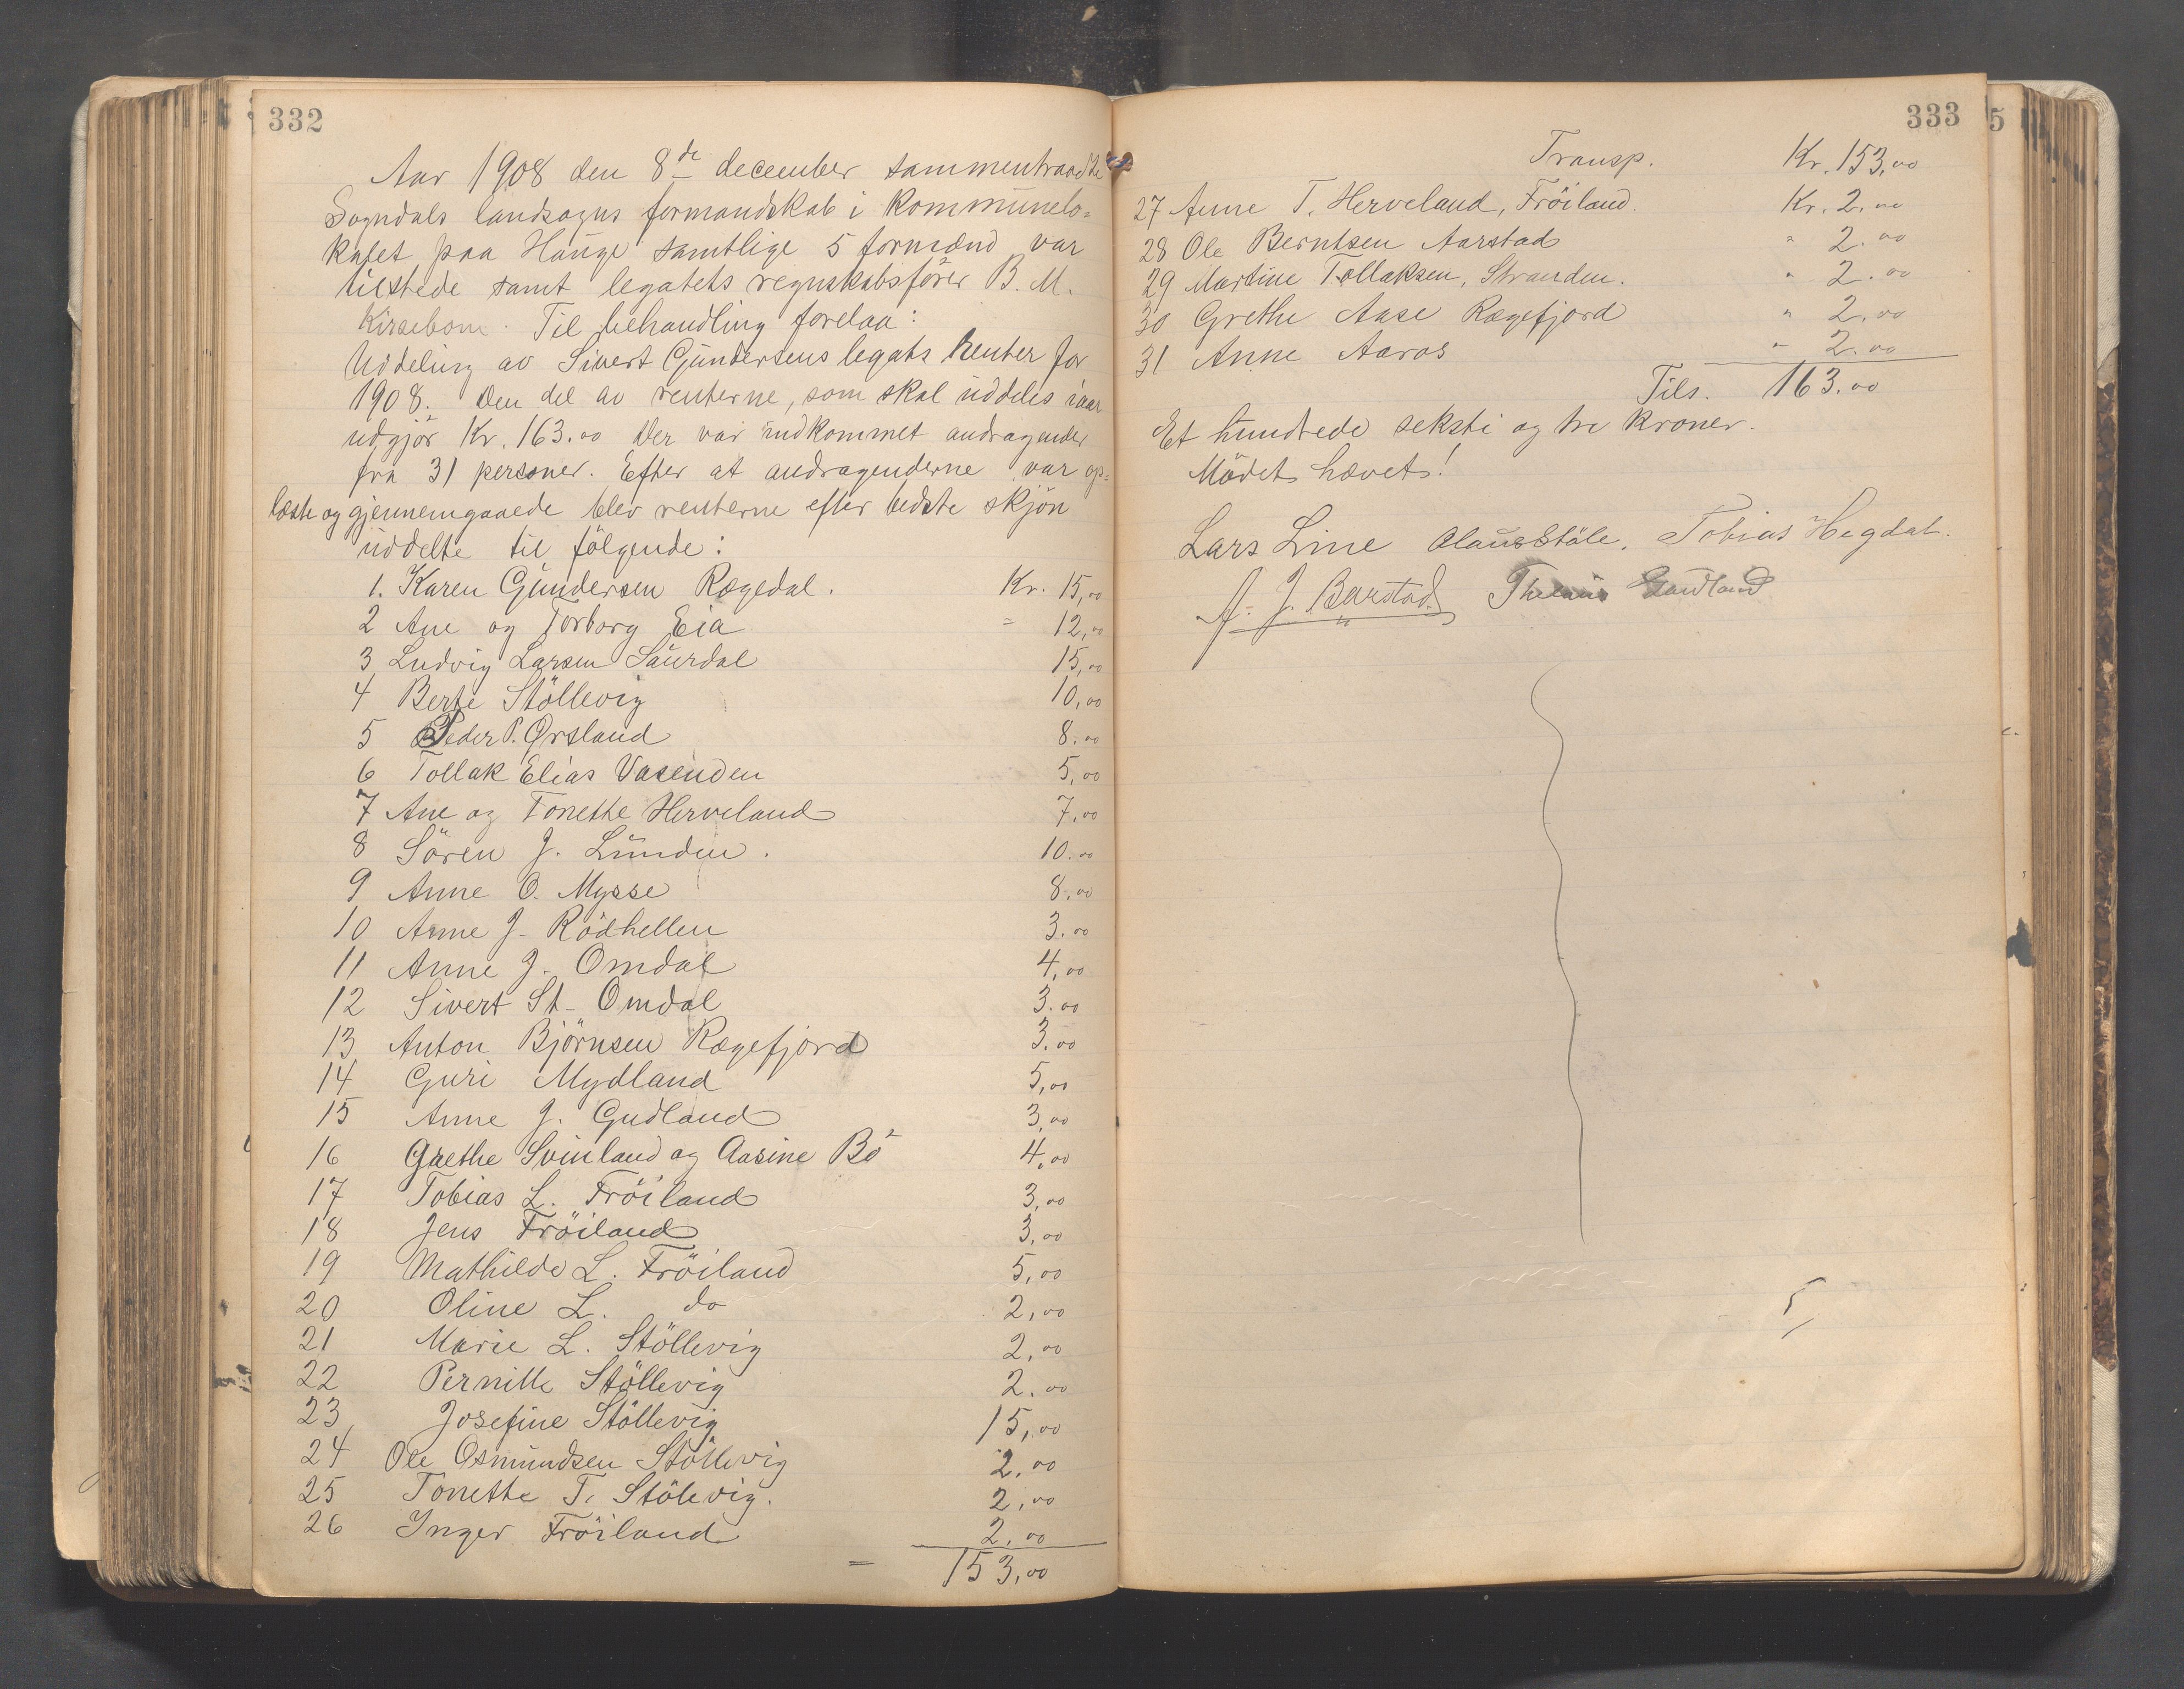 332
Aar 1908 den 8de december sammentraadte
Sogndals landsogns formandskab i kommunelo=
kalet paa Hauge samtlige 5 formænd var
tilstede samt legatets regnskabsfører B. M.
Kirsebom. Til behandling forelaa:
Uddeling av Sivert Gundersens legats renter for
1908. Den del av renterne, som skal uddeles iaar
udgjør Kr. 163.00 Der var indkommet andragender
fra 31 personer. Efter at andragenderne var op=
læste og gjennemgaaede blev renterne efter bedste skjøn
uddelte til følgende:
1. Karen Gundersen Rægedal. Kr. 15,00
2 Ane og Torborg Eia " 12,00
3 Ludvig Larsen Saurdal 15,00
4 Berte Stöllevig 10,00
5 Peder P. Ørsland 8.00
6 Tollak Elias Vasenden 5,00
7 Ane og Tonette Herveland 7.00
8 Sören J. Lunden. 10.00
9 Anne O. Mysse 8.00
10 Anne J. Rödhellen 3.00
11 Anne J. Omdal 4,00
12 Sivert St. Omdal 3.00
13 Anton Björnsen Rægefjord 3.00
14 Guri Mydland 5,00
15 Anne J. Gudland 3,00
16 Grethe Svinland og Aasine Bö 4,00
17 Tobias L. Fröiland 3,00
18 Jens Fröiland 3,00
19 Mathilde L. Fröiland 5,00
20 Oline L. do 2,00
21 Marie L. Stöllevig 2,00
22 Pernille Stöllevig 2.00
23 Josefine Stöllevig 15,00
24 Ole Osmundsen Stöllevig 2,00
25 Tonette T. Stölevig. 2,00
26 Inger Fröiland 2.00
= 153,00
333
5
Transp. Kr. 153,00
27 Anne T. Herveland, Fröiland. Kr. 2.00
28 Ole Berntsen Aarstad " 2.00
29 Martine Tollaksen, Stranden. " 2.00
30 Grethe Aase Rægefjord " 2.00
31 Anne Aaros " 2.00
Tils. 163.00
Et hundrede seksti og tre kroner.
Mödet hævet!
Lars Line Olaus Stöle. Tobias Hegdal.
A. J. Barstad. Gudland